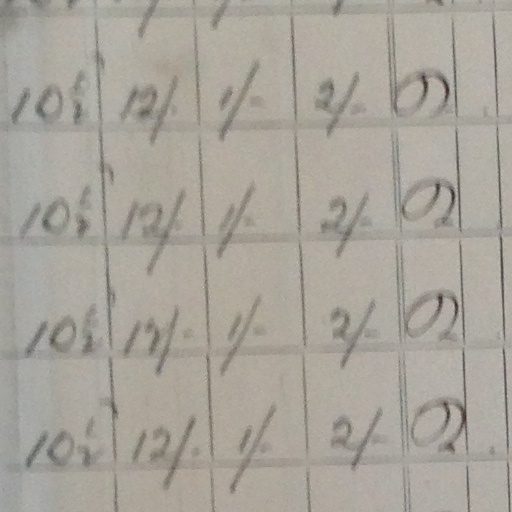 10½ 12/- 1/- 2/-
10½ 12/- 1/- 2/-
10½ 12/- 1/- 2/-
10½ 12/- 1/- 2/-